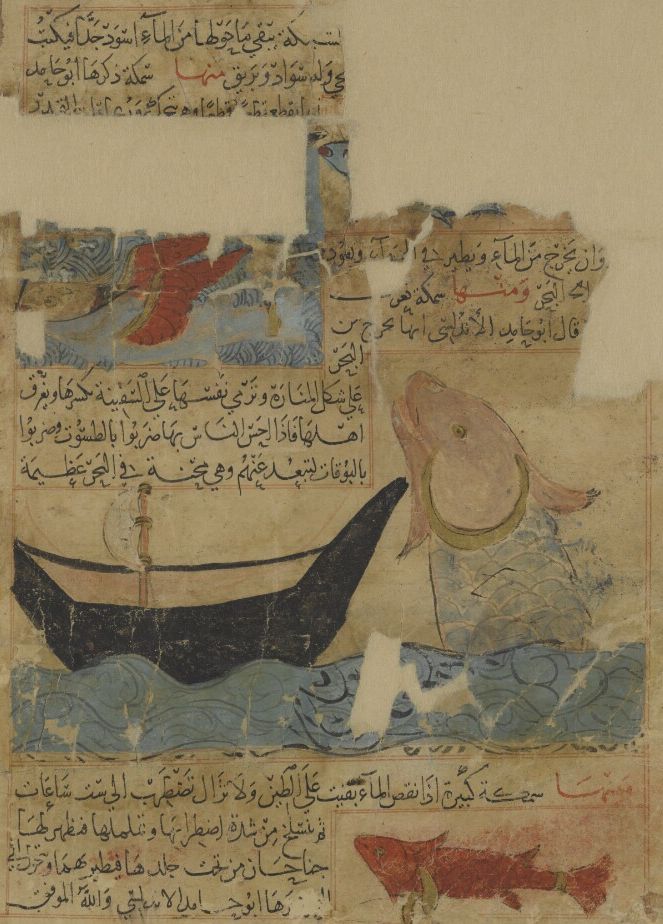 سمكة يبقى ما حولها من الماء اسود جدا فيكتب
وله سواد وبريق منها سمكة ذكرها ابو حامد
وان يخرج من الماء ويطير في
الى البحر ومنها سمكة
قال ابو حامد الاندلسي انها تخرج من
البحر
على شكل المنارة وترمي نفسها على السفينة تكسرها وتغرق
اهلها فاذا احس الناس بها ضربوا بالطسوت وضربوا
بالبوقات لتبعد عنهم وهي محنة في البحر عظيمة
ومنها سمكة كبيرة اذا نقص الماء بقيت على الطين ولا تزال تضطرب الى ست ساعات
ثم ينسلخ من شدة اضطرابها وتململها فتظهر لها
جناحان من تحت جلدها فتطير بهما
ابو حامد الاندلسي والله الموفق